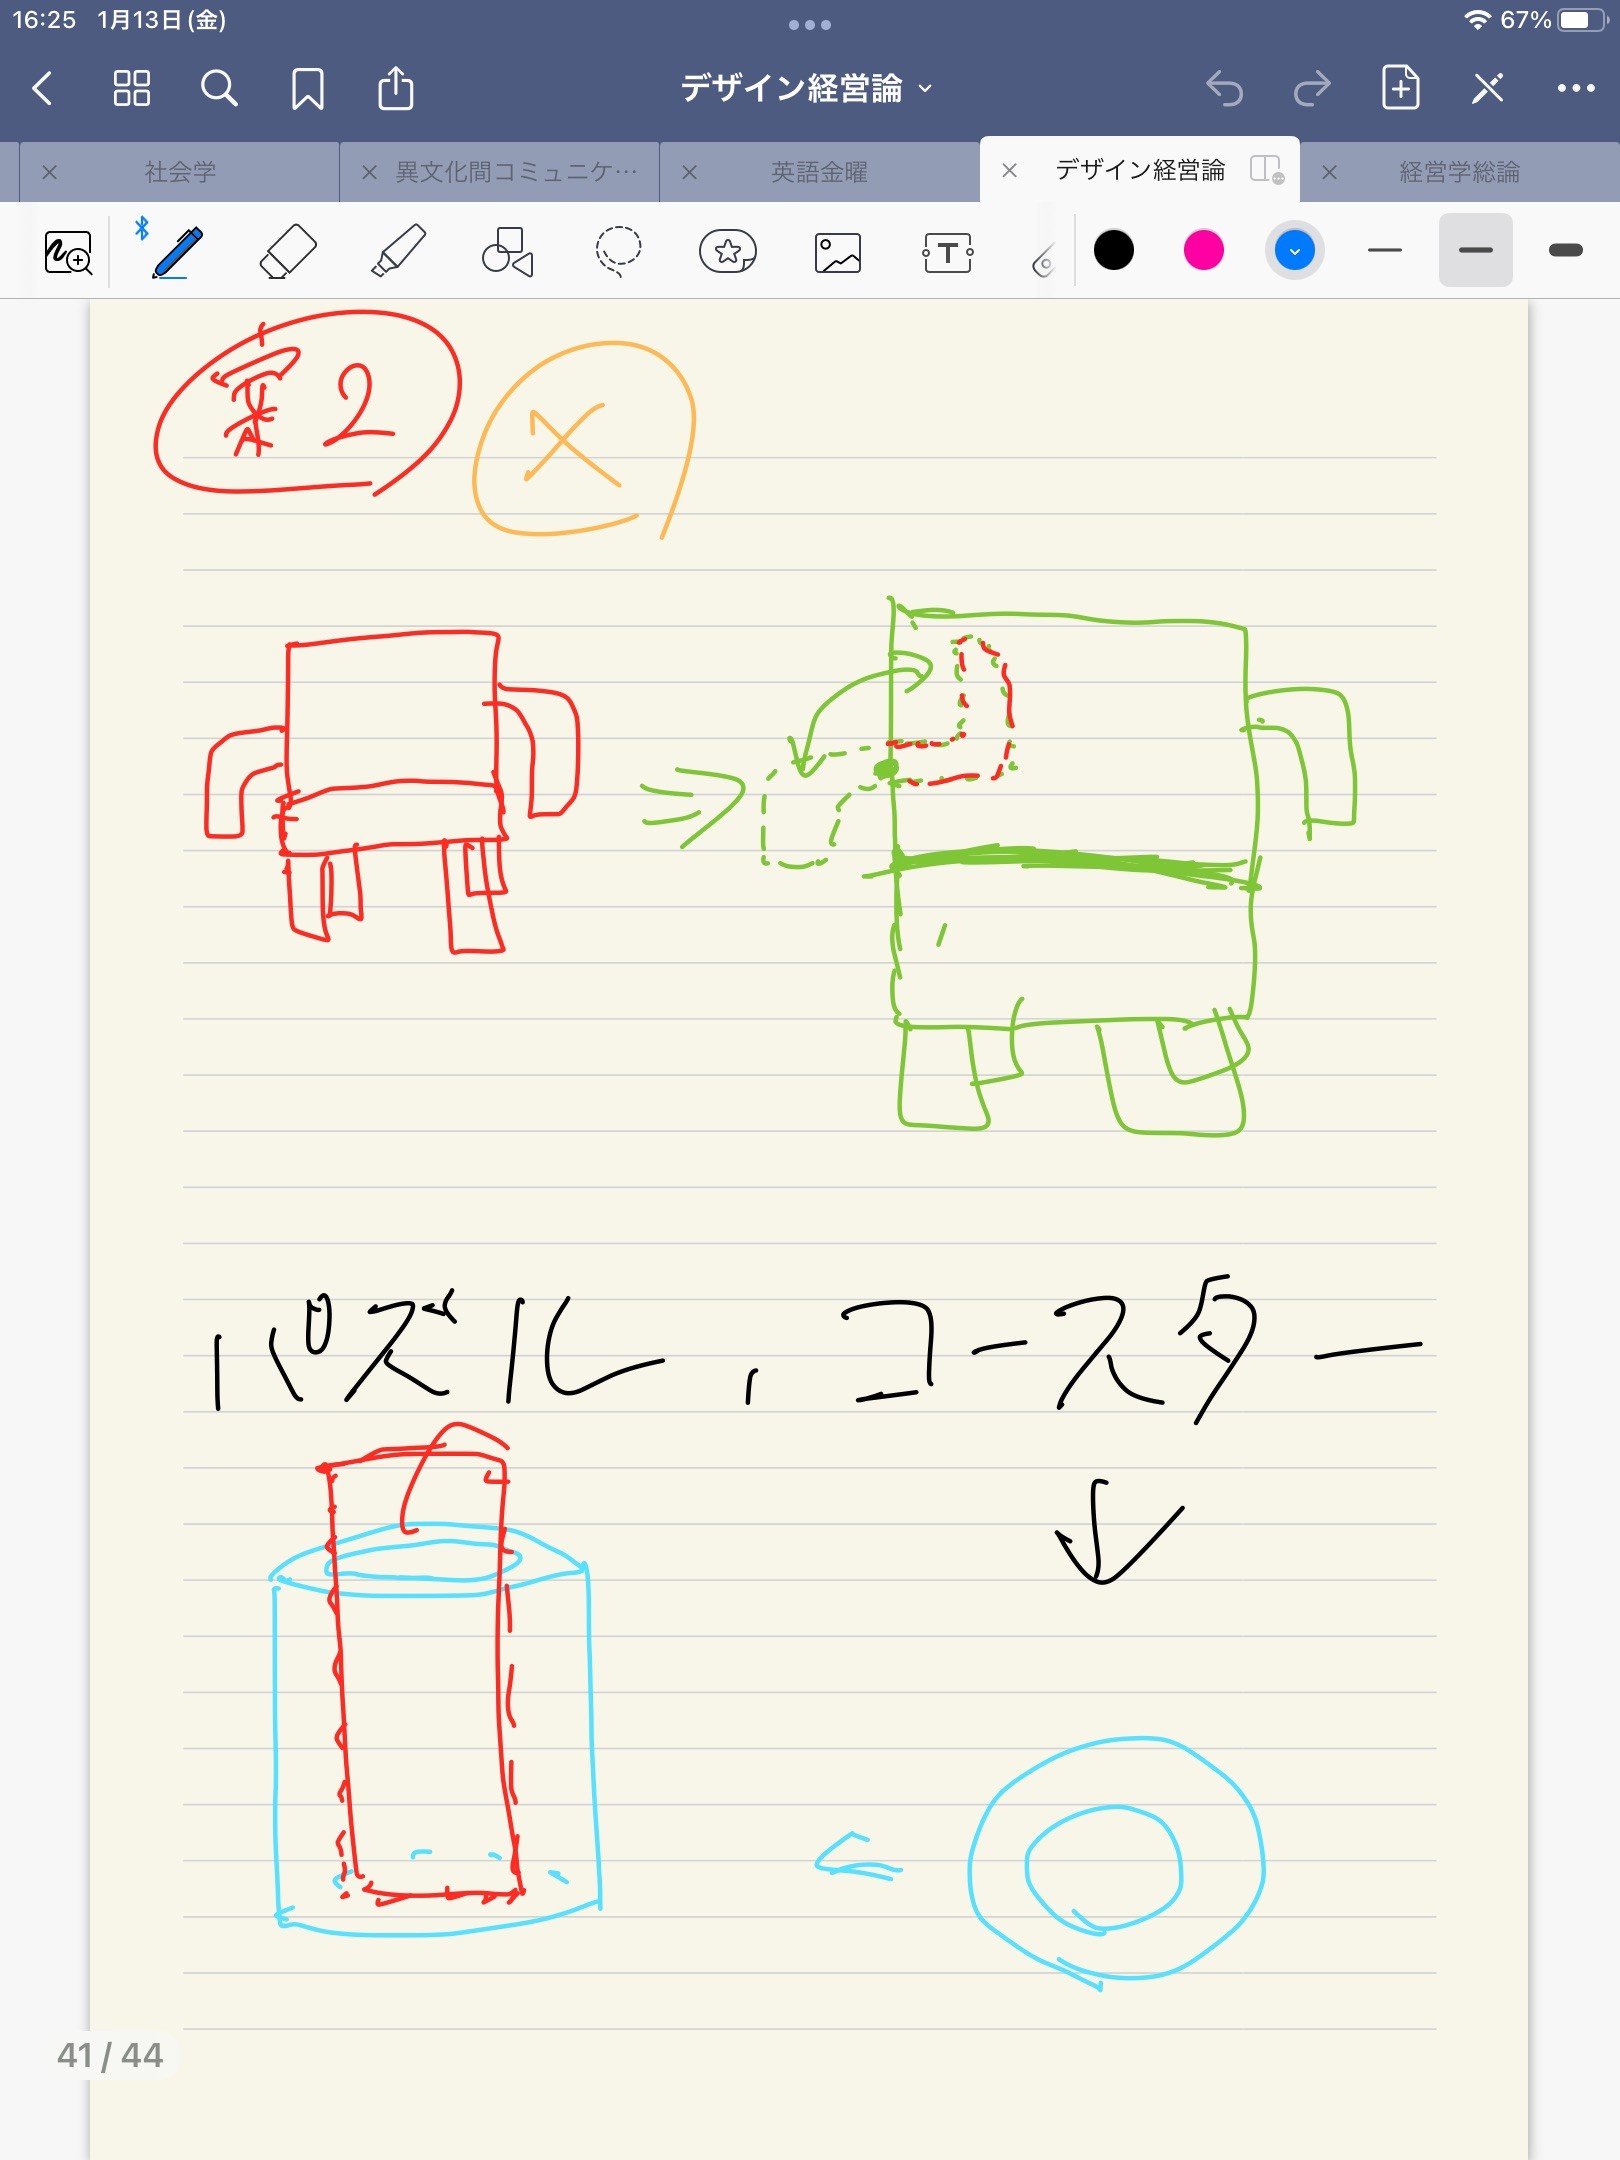 16:25 1月13日(金) 67%
デザイン経営論
社会学 異文化間コミュニケ… 英語金曜 デザイン経営論 経営学総論
案2
パズル, コースター
41 / 44